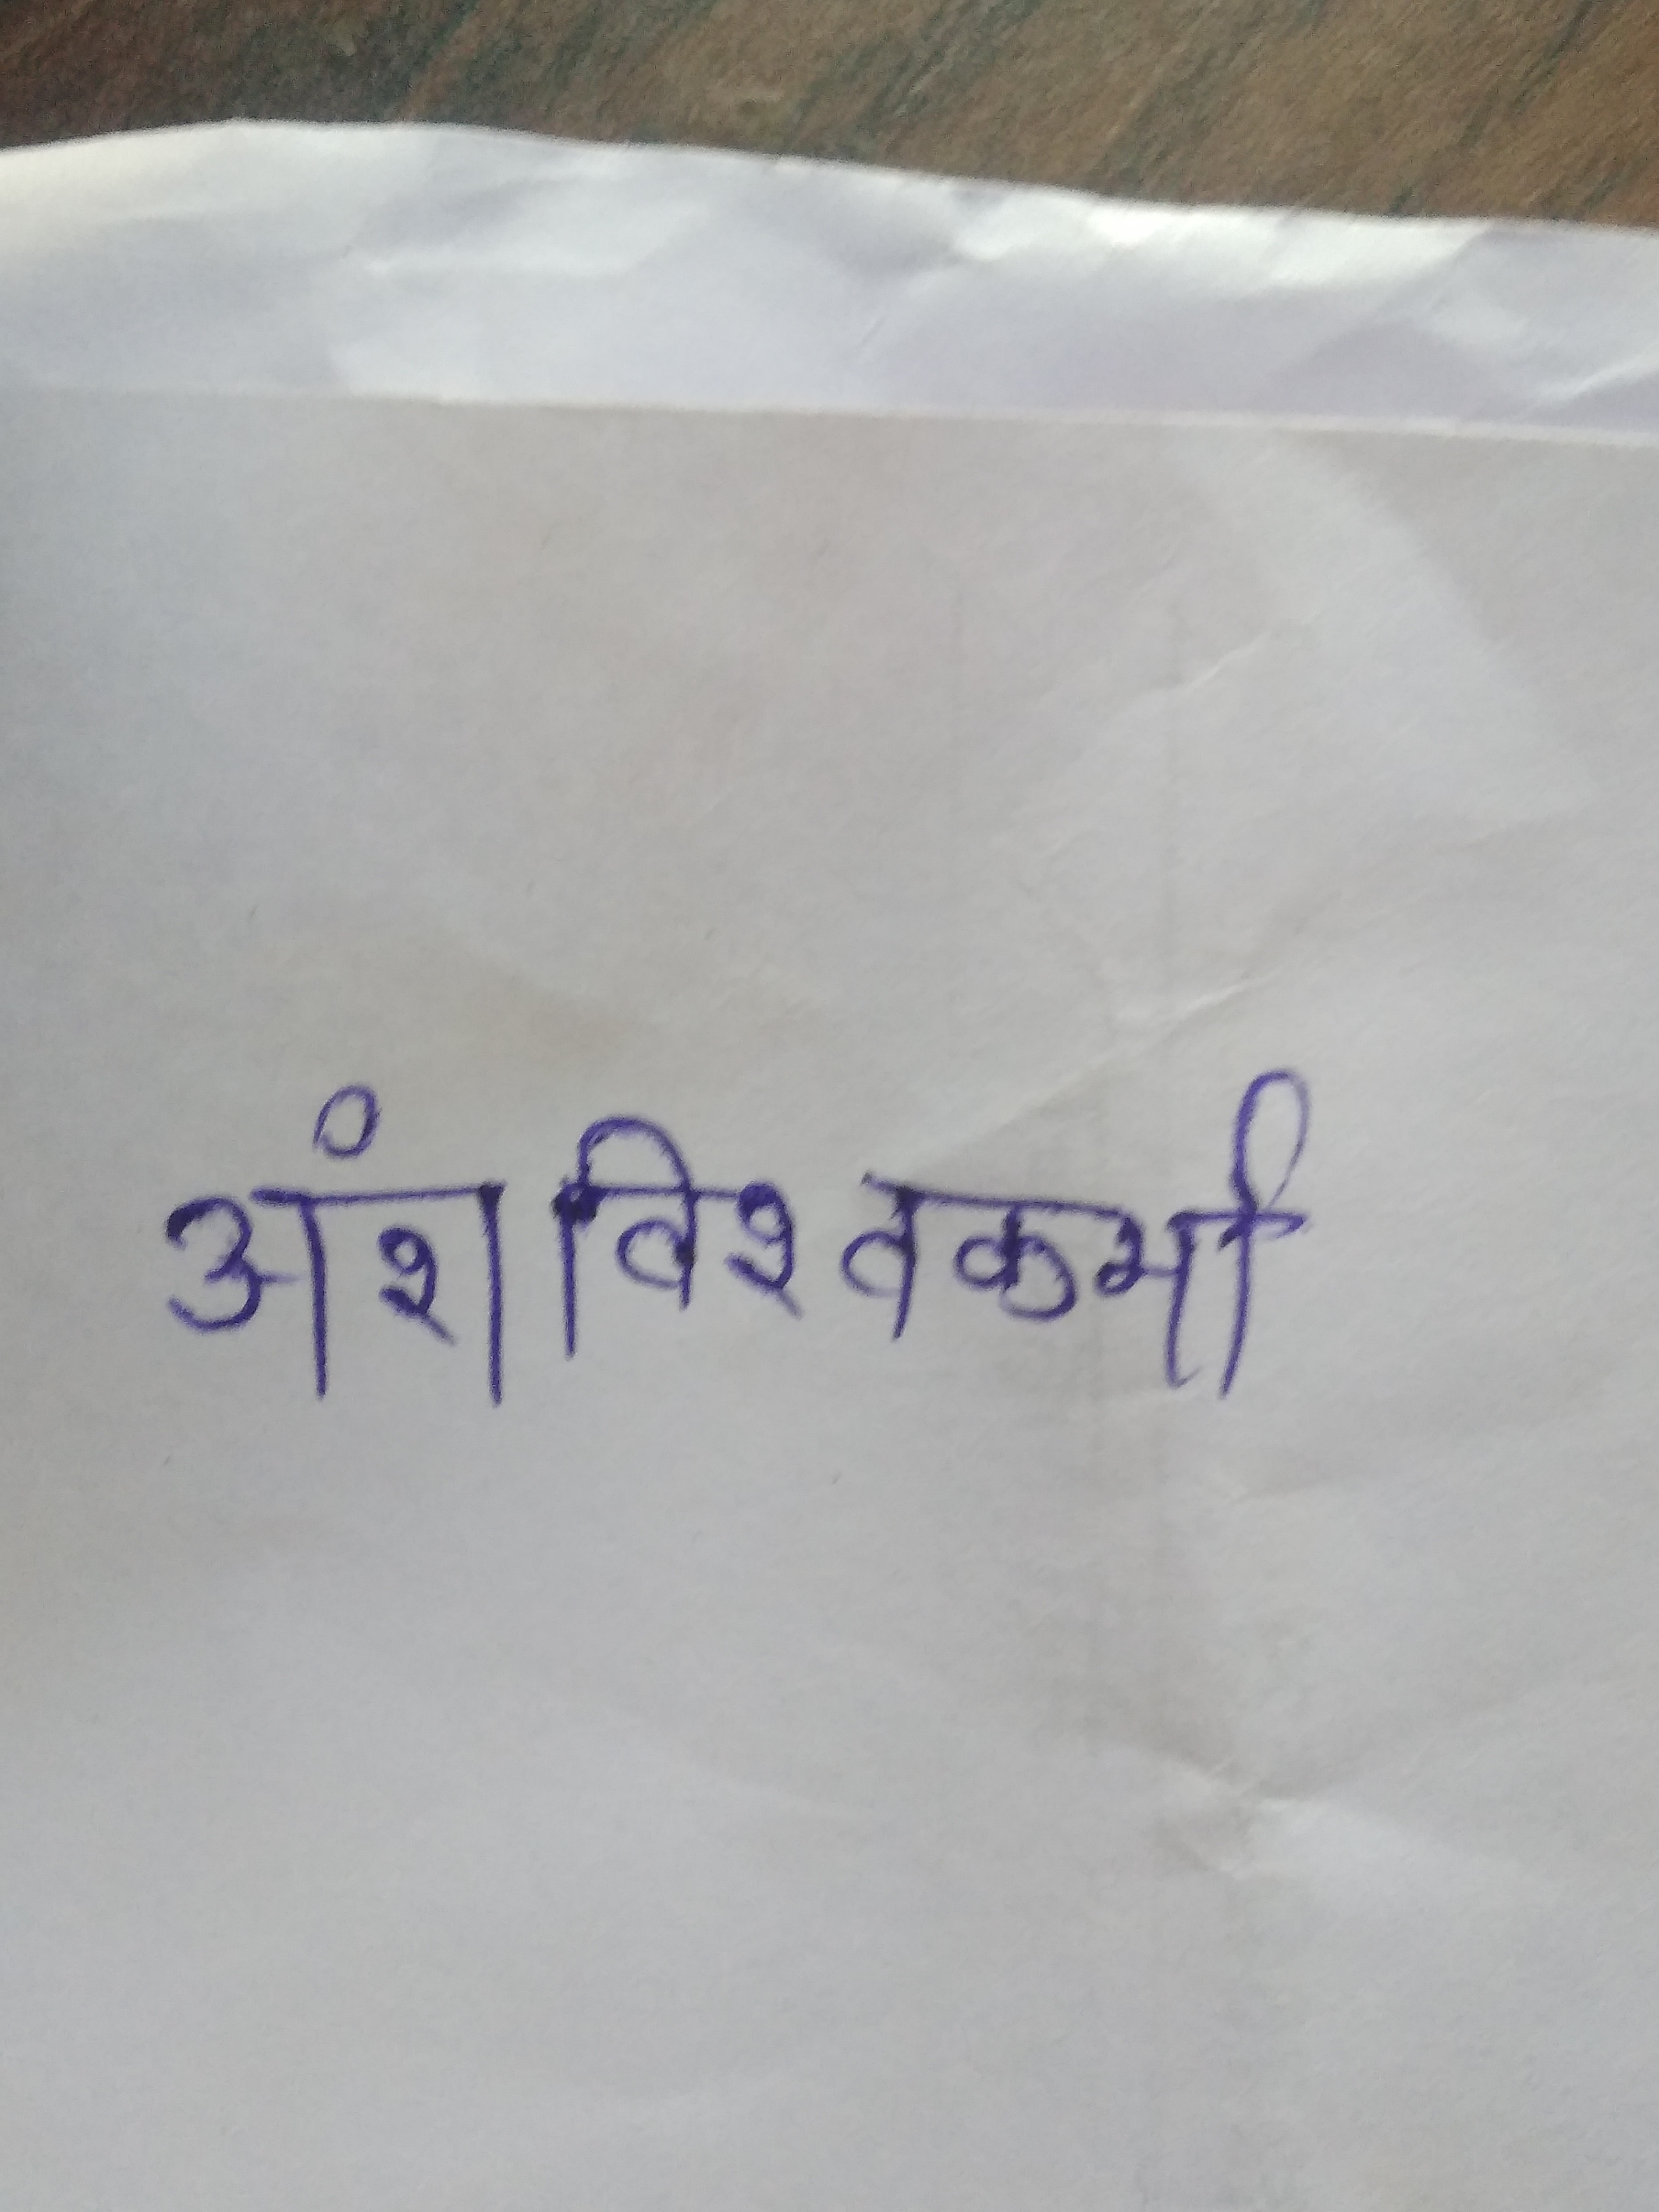 अंश विश्वकर्मा